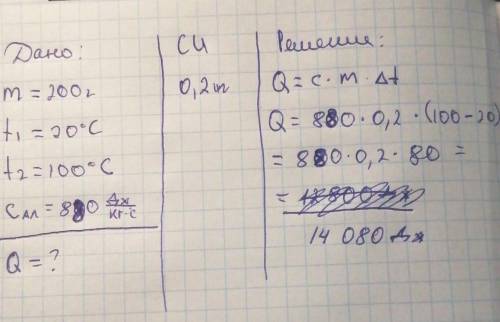 Дано:
m = 200г
t₁ = 20°C
t₂ = 100°C
Cал = 880 Дж/кг·C
Q = ?
СИ
0,2 кг
Решение:
Q = c · m · Δt
Q = 880 · 0,2 · (100 - 20)
= 880 · 0,2 · 80 =
=
14 080 Дж